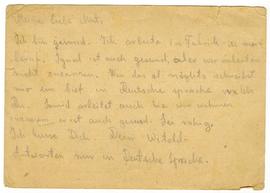 Meine liebe Mut.
Ich bin gesund. Ich arbeite in Fabrik
Ignat ist auch gesund, aber wir arbeiten
nicht zusammen. Wen das ist möglich schreibt
mir ein brief in Deutsche sprache
arbeitet auch bei wir wohnen
ist auch gesund. Sei ruhig.
Ich küsse Dich. Dein Witold.
Antworten nur in Deutsche Sprache.